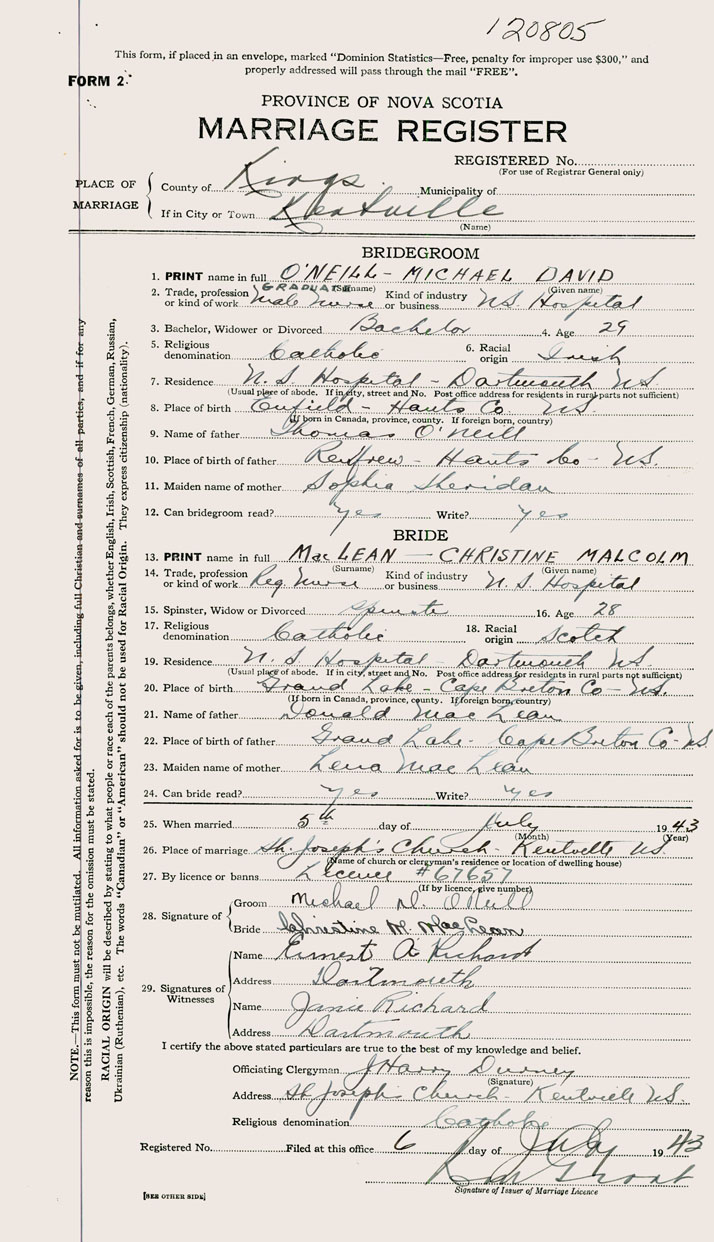 120805
This form, if placed in an envelope, marked "Dominion Statistics—Free, penalty for improper use $300," and
properly addressed will pass through the mail "FREE".
FORM 2.
PROVINCE OF NOVA SCOTIA
MARRIAGE REGISTER
REGISTERED No.
(For use of Registrar General only)
PLACE OF MARRIAGE
County of Kings Municipality of
If in City or Town Kentville
(Name)
BRIDEGROOM
1. PRINT name in full O'NEILL - MICHAEL DAVID
(Surname) (Given name)
GRADUATE
2. Trade, profession or kind of work Male Nurse Kind of industry or business N.S. Hospital
3. Bachelor, Widower or Divorced Bachelor 4. Age 29
5. Religious denomination Catholic 6. Racial origin Irish
7. Residence N.S Hospital - Dartmouth N.S.
(Usual place of abode. If in city, street and No. Post office address for residents in rural parts not sufficient)
8. Place of birth Enfield - Hants Co N.S.
(If born in Canada, province, county. If foreign born, country)
9. Name of father Thomas O'Neill
10. Place of birth of father Renfrew - Hants Co - N.S.
11. Maiden name of mother Sophia Sheridan
12. Can bridegroom read? yes Write? yes
BRIDE
13. PRINT name in full MacLEAN — CHRISTINE MALCOLM
(Surname) (Given name)
14. Trade, profession or kind of work Reg. Nurse Kind of industry or business N.S Hospital
15. Spinster, Widow or Divorced 16. Age 28
17. Religious denomination Catholic 18. Racial origin Scotch
19. Residence N.S Hospital - Dartmouth N.S
(Usual place of abode. If in city, street and No. Post office address for residents in rural parts not sufficient)
20. Place of birth Grand Lake - Cape Breton Co - N.S.
(If born in Canada, province, county. If foreign born, country)
21. Name of father Donald MacLean
22. Place of birth of father Grand Lake - Cape Breton Co - N.S.
23. Maiden name of mother Lena MacLean
24. Can bride read? yes Write? yes
25. When married 5th day of July 1943
(Month) (Year)
26. Place of marriage St. Joseph's Church - Kentville N.S.
(Name of church or clergyman's residence or location of dwelling house)
27. By licence or banns Licence #67657
(If by licence, give number)
28. Signature of
Groom Michael D. O'Neill
Bride Christine M. MacLean
29. Signatures of Witnesses
Name Ernest A Richard
Address Dartmouth
Name Janie Richard
Address Dartmouth
I certify the above stated particulars are true to the best of my knowledge and belief.
Officiating Clergyman J Harry Durney
(Signature)
Address St Joseph's Church - Kentville N.S.
Religious denomination Catholic
Registered No. Filed at this office 6 day of July 1943
Grant
Signature of Issuer of Marriage Licence
[SEE OTHER SIDE]
NOTE.—This form must not be mutilated. All information asked for is to be given, including full Christian and surnames of all parties, and if for any
reason this is impossible, the reason for the omission must be stated.
RACIAL ORIGIN will be described by stating to what people or race each of the parents belongs, whether English, Irish, Scottish, French, German, Russian,
Ukrainian (Ruthenian), etc. The words "Canadian" or "American" should not be used for Racial Origin. They express citizenship (nationality).